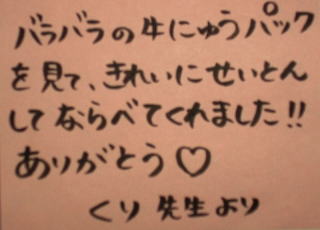 バラバラの牛にゅうパック
を見て、きれいにせいとん
してならべてくれました!!
ありがとう♡
くり先生より